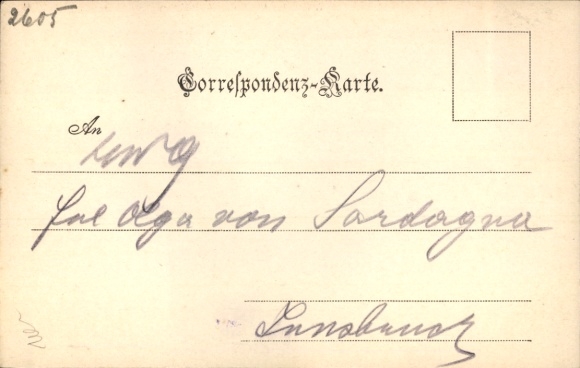 2605
Correspondenz-Karte.
An
Frl Olga von Sardagna
Innsbruck